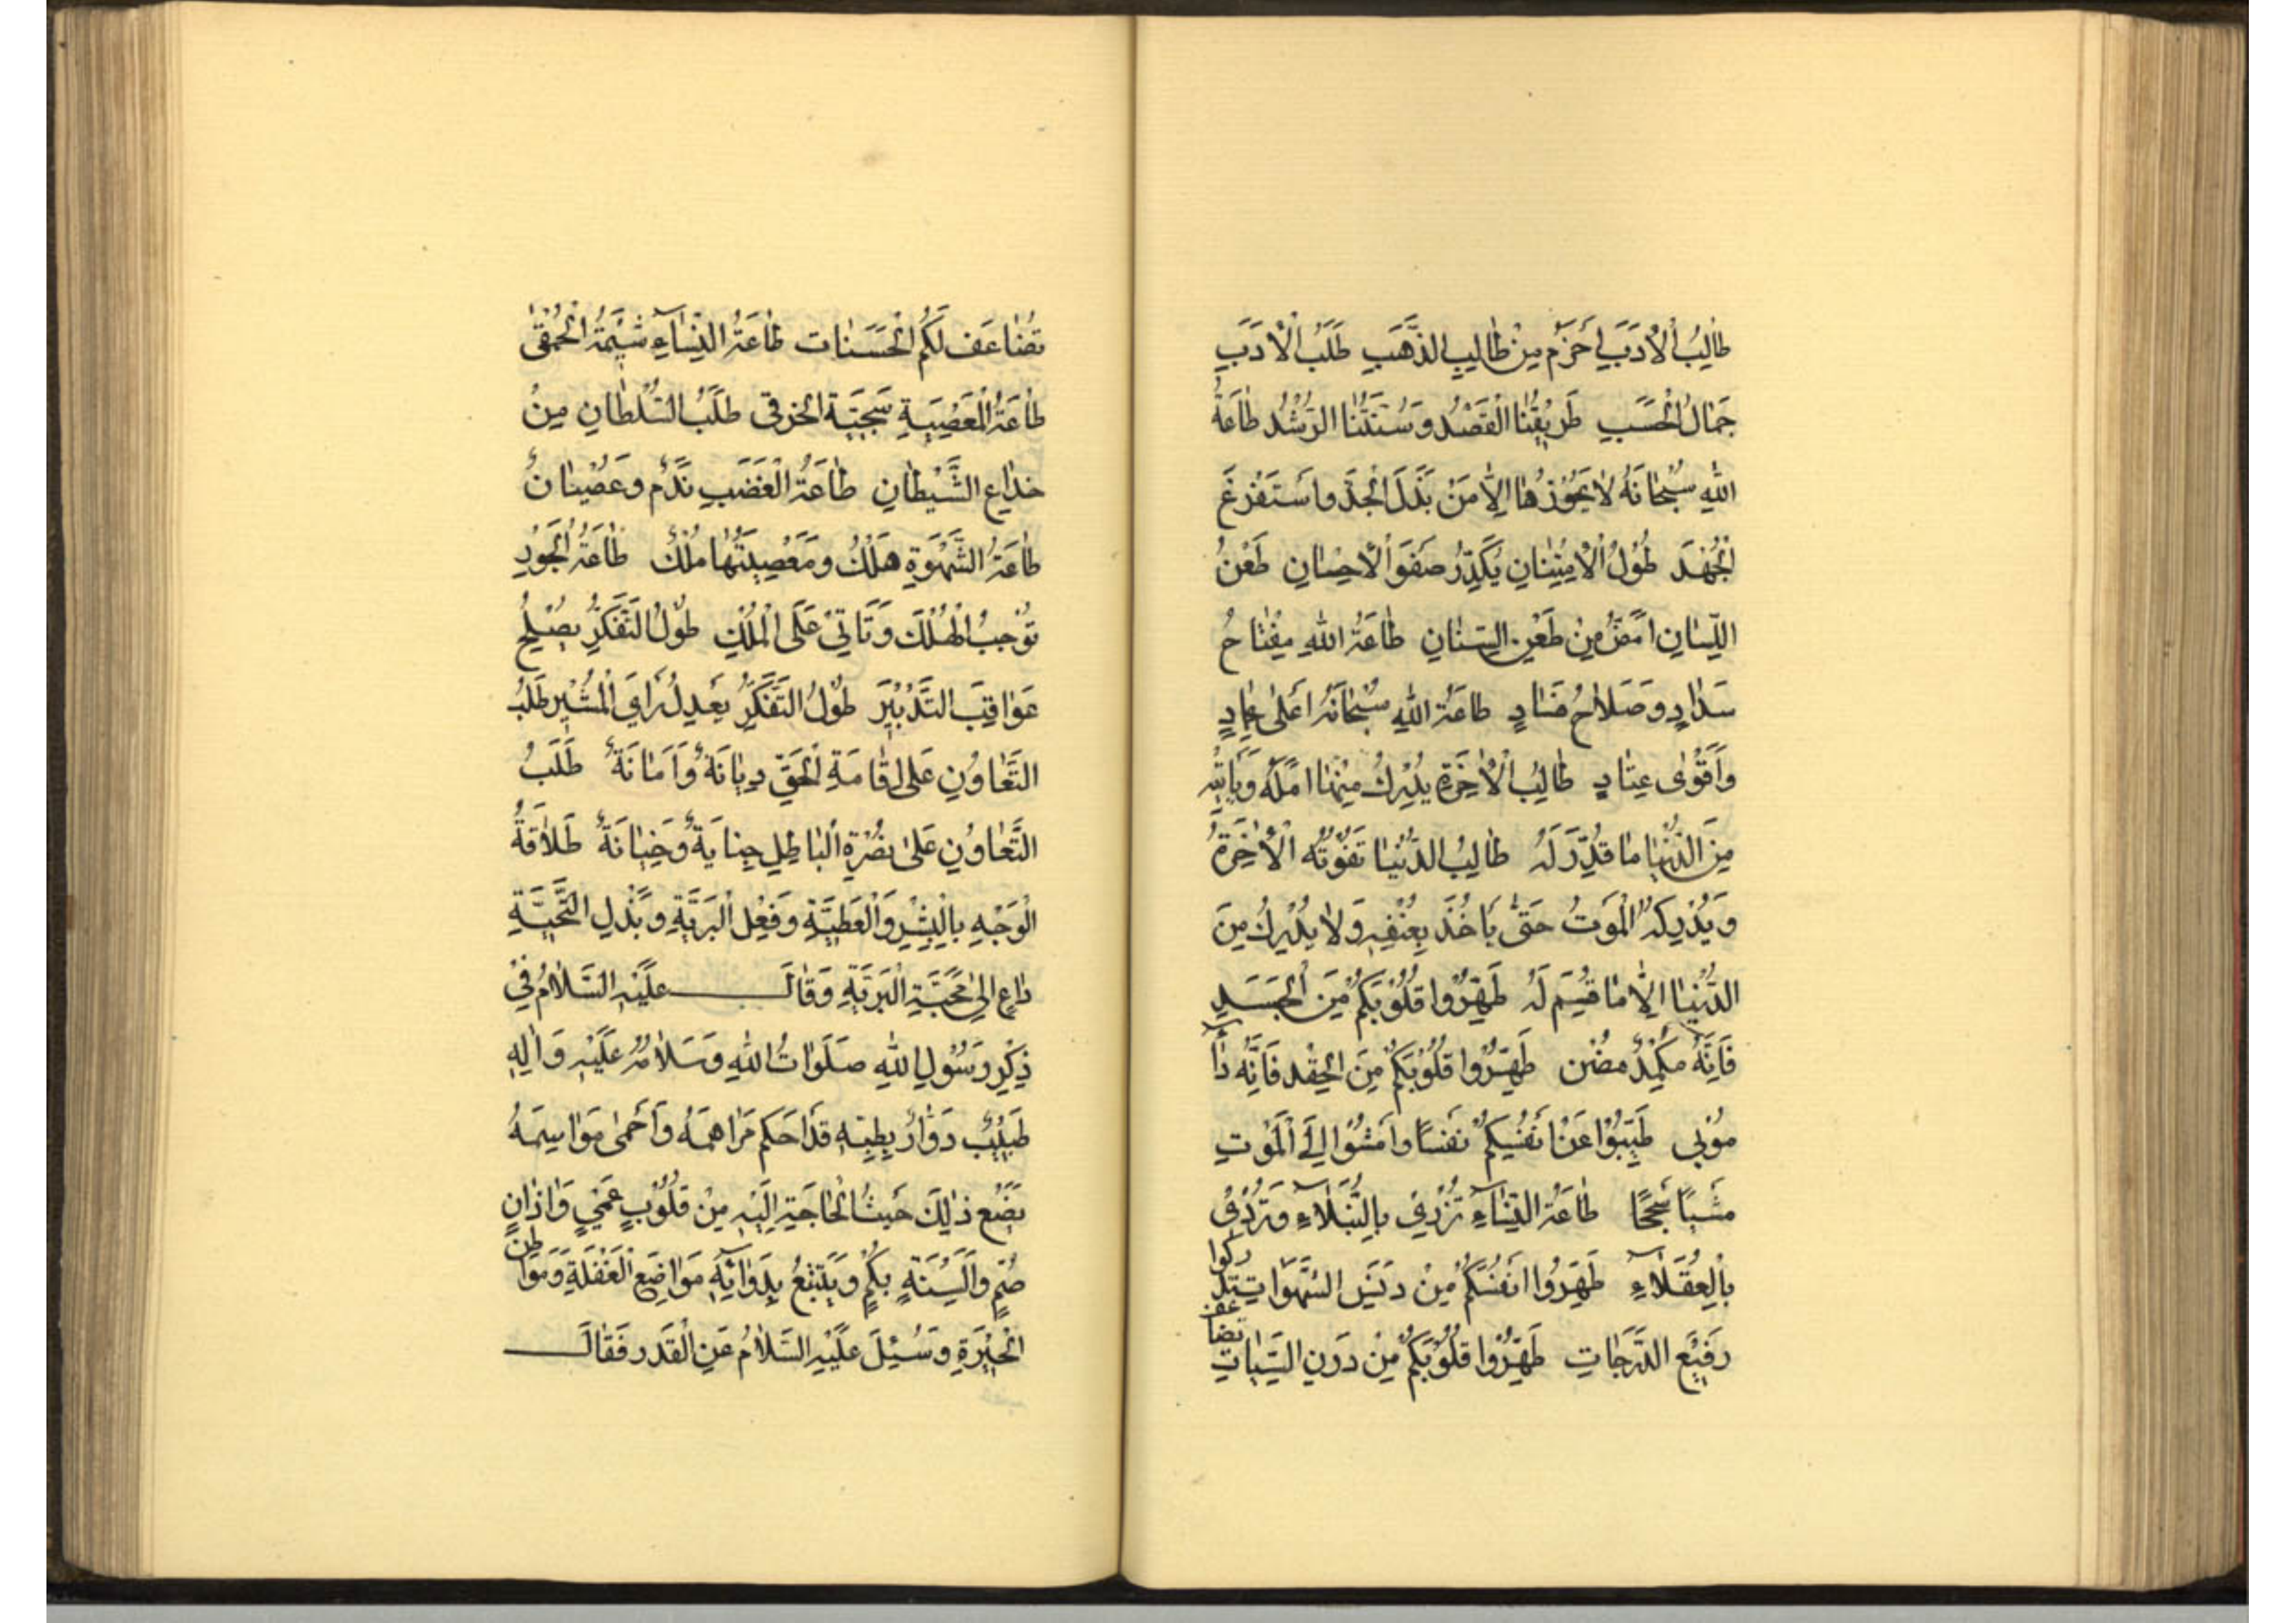 طالِبُ الْأَدَبِ أَحْزَمُ مِنْ طالِبِ الذَّهَبِ طَلَبُ الْأَدَبِ
جَمالُ الْحَسَبِ طَرِيقَتُنَا الْقَصْدُ وَسُنَّتُنَا الرُّشْدُ طاعَةُ
اللهِ سُبْحانَهُ لا يَحُوزُها إِلّا مَنْ بَذَلَ الْجِدَّ واسْتَفْرَغَ
الْجُهْدَ طُولُ الْاِمْتِنانِ يُكَدِّرُ صَفْوَ الْاِحْسانِ طَعْنُ
اللِّسانِ اَمَضُّ مِنْ طَعْنِ السِّنانِ طاعَةُ اللهِ مِفْتاحُ
سَدادٍ وَصَلاحُ فَسادٍ طاعَةُ اللهِ سُبْحانَهُ اَعْلى عِمادٍ
وَأَقْوى عِتادٍ طالِبُ الْآخِرَةِ يُدْرِكُ مِنْها اَمَلَهُ وَيَأْتِيهِ
مِنَ الدُّنْيا ما قُدِّرَ لَهُ طالِبُ الدُّنْيا تَفُوتُهُ الْآخِرَةُ
وَيُدْرِكُهُ الْمَوْتُ حَتّى يَأْخُذَ بِعُنْفِهِ وَلا يُدْرِكُ مِنَ
الدُّنْيا إِلّا ما قُسِمَ لَهُ طَهِّرُوا قُلُوبَكُمْ مِنَ الْحَسَدِ
فَإِنَّهُ مُكْمِدٌ مُضْنٍ طَهِّرُوا قُلُوبَكُمْ مِنَ الْحِقْدِ فَإِنَّهُ داءٌ
مُوْبِي طَيِّبُوا عَنْ أَنْفُسِكُمْ نَفْسًا وامْشُوا إِلَى الْمَوْتِ
مَشْيًا سُجُحًا طاعَةُ النِّساءِ تُزْرِي بِالنُّبَلاءِ وَتُرْدِي
بِالْعُقَلاءِ طَهِّرُوا اَنْفُسَكُمْ مِنْ دَنَسِ الشَّهَواتِ تُدْرِكُوا
رَفِيعَ الدَّرَجاتِ طَهِّرُوا قُلُوبَكُمْ مِنْ دَرَنِ السَّيِّئاتِ تضاعف
تُضاعَف لَكُمُ الْحَسَنات طاعَةُ النِّساءِ شِيْمَةُ الْحَمْقى
طاعَةُ الْمَعْصِيَةِ سَجِيَّة الخرقى طَلَبُ السُّلْطانِ مِنْ
خِداعِ الشَّيْطانِ طاعَةُ الْغَضَبِ نَدَمٌ وَعِصْيانٌ
طاعَةُ الشَّهْوَةِ هُلْكٌ وَمَعْصِيَتُها مُلْكٌ طاعَةُ الْجَوْرِ
تُوْجِبُ الْهُلْكَ وَتَأْتِي عَلَى الْمُلْكِ طُولُ التَّفَكُّرِ يُصْلِحُ
عَواقِبَ التَّدْبِيرِ طُولُ التَّفَكُّرِ يَعْدِلُ رَايَ الْمُشِيرِ طَلَبُ
التَّعاوُنِ عَلى اِقامَةِ الْحَقِّ دِيانَةٌ وَاَمانَةٌ طَلَبُ
التَّعاوُنِ عَلى نُصْرَةِ الْباطِلِ جِنايَةٌ وَخِيانَةٌ طَلاقَةُ
الْوَجْهِ بِالْبِشْرِ وَالْعَطِيَّةِ وَفِعْلِ الْبَرِيَّةِ وَبَذْلِ التَّحِيَّةِ
داعٍ اِلى مَحَبَّةِ الْبَرِيَّةِ وَقالَ عَلَيْهِ السَّلامُ فِي
ذِكْرِ رَسُولِ اللهِ صَلَواتُ اللهِ وَسَلامُهُ عَلَيْهِ وَآلِهِ
طَبِيبٌ دَوّارٌ بِطِبِّهِ قَدْ اَحْكَمَ مَراهِمَهُ وَأَحْمى مَواسِمَهُ
يَضَعُ ذلِكَ حَيْثُ الْحاجَةِ اِلَيْهِ مِنْ قُلُوبٍ عُمْيٍ وَاذانٍ
صُمٍّ وَاَلْسِنَةٍ بُكْمٍ وَيَتَّبِعُ بِدَوائِهِ مَواضِعَ الْغَفْلَةِ وَمَواطِنَ
الْحَيْرَةِ وَسُئِلَ عَلَيْهِ السَّلامُ عَنِ الْقَدَرِ فَقالَ